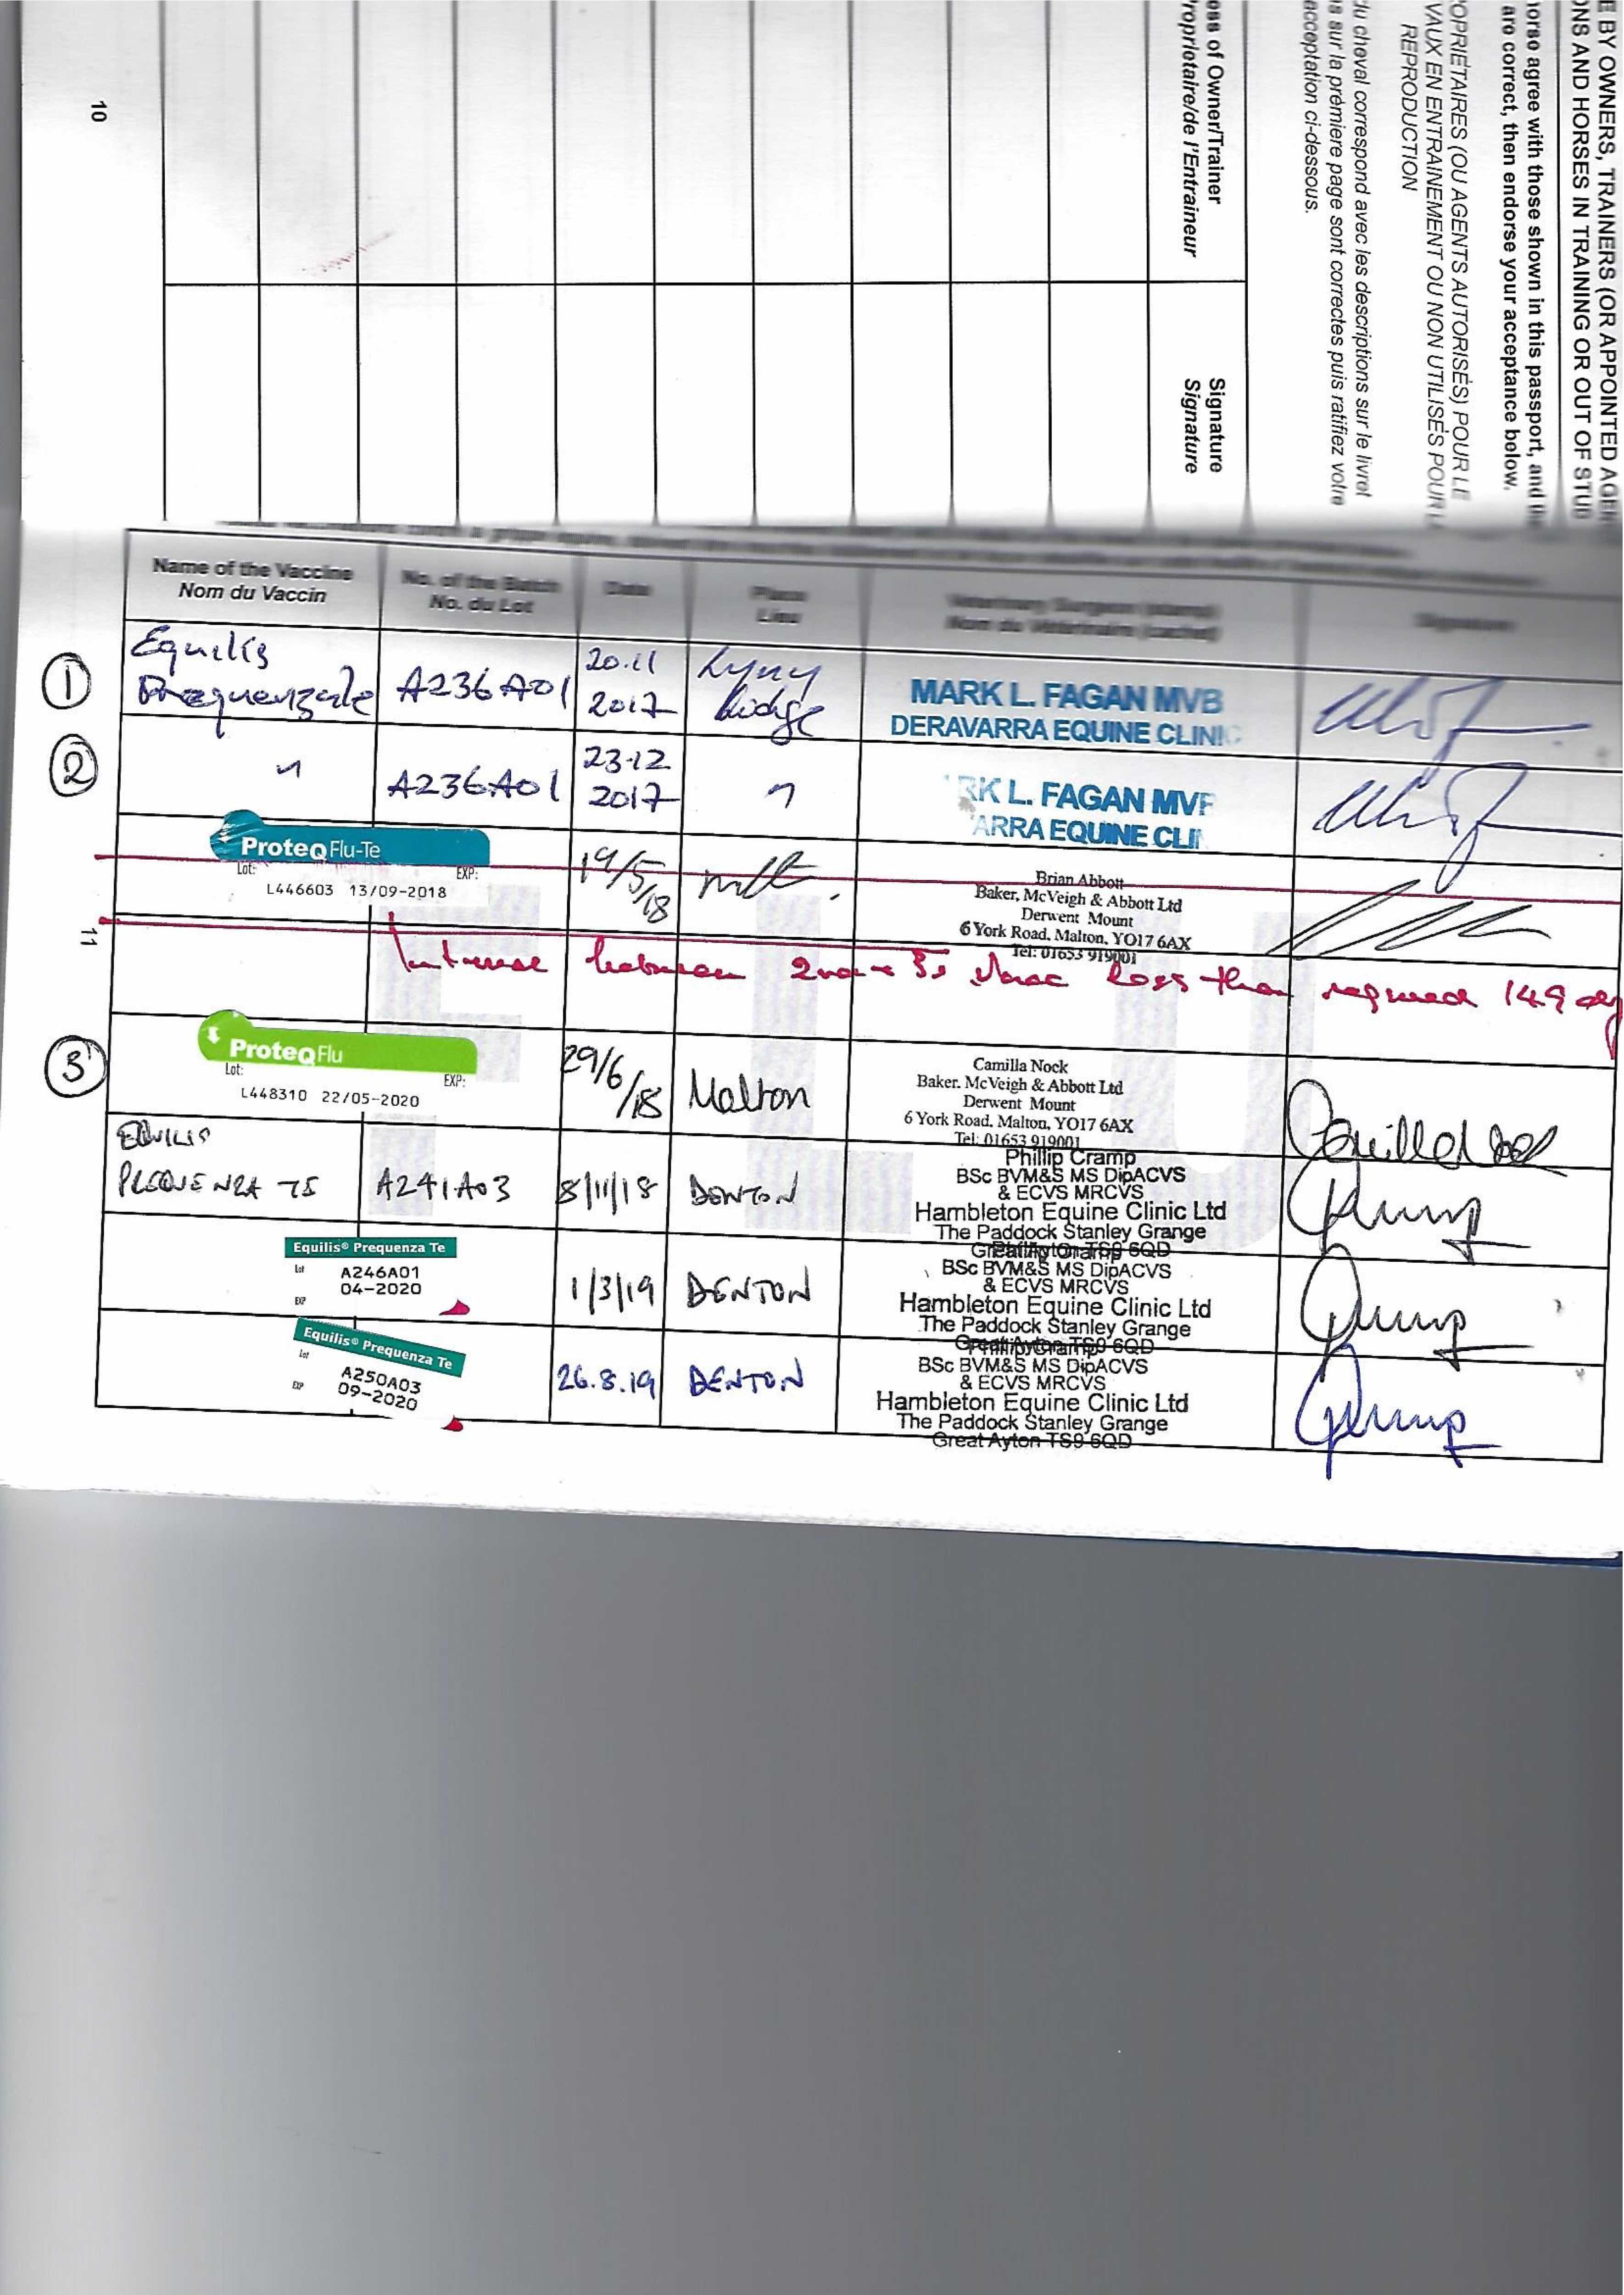 E BY OWNERS, TRAINERS (OR APPOINTED AGEN
ONS AND HORSES IN TRAINING OR OUT OF STUD
horse agree with those shown in this passport, and the
are correct, then endorse your acceptance below.
OPRIÉTAIRES (OU AGENTS AUTORISÉS) POUR LE
VAUX EN ENTRAINEMENT OU NON UTILISÉS POUR L
REPRODUCTION
du cheval correspond avec les descriptions sur le livret
s sur la prémiere page sont correctes puis ratifiez votre
acceptation ci-dessous.
ess of Owner/Trainer
roprietaire/de l'Entraineur
Signature
Signature
10
Name of the Vaccine
Nom du Vaccin
No. of the Batch
No. du Lot
Date
Place
Lieu
Veterinary Surgeon (stamp)
Nom du Vétérinaire (cachet)
Signature
1
Equilis
A236A01
20.11
2017
Lodge
MARK L. FAGAN MVB
DERAVARRA EQUINE CLINIC
2
"
A236A01
23.12
2017
"
RK L. FAGAN MV
ARRA EQUINE CLI
ProteqFlu-Te
Lot:
EXP:
L446603 13/09-2018
19/5/18
Brian Abbott
Baker, McVeigh & Abbott Ltd
Derwent Mount
6 York Road, Malton, YO17 6AX
Tel: 01653 919001
11
between 2nd less than required 149
3
ProteqFlu
Lot:
EXP:
L448310 22/05-2020
29/6/18
Malton
Camilla Nock
Baker. McVeigh & Abbott Ltd
Derwent Mount
6 York Road, Malton, YO17 6AX
Tel: 01653 919001
EQUILIS
PREQUENZA TE
A241A03
8/11/18
DENTON
Phillip Cramp
BSc BVM&S MS DipACVS
& ECVS MRCVS
Hambleton Equine Clinic Ltd
The Paddock Stanley Grange
Great Ayton TS9 6QD
Equilis® Prequenza Te
Lot
A246A01
04-2020
EXP
1/3/19
DENTON
Phillip Cramp
BSc BVM&S MS DipACVS
& ECVS MRCVS
Hambleton Equine Clinic Ltd
The Paddock Stanley Grange
Great Ayton TS9 6QD
Equilis® Prequenza Te
Lot
A250A03
09-2020
EXP
26.8.19
DENTON
Phillip Cramp
BSc BVM&S MS DipACVS
& ECVS MRCVS
Hambleton Equine Clinic Ltd
The Paddock Stanley Grange
Great Ayton TS9 6QD